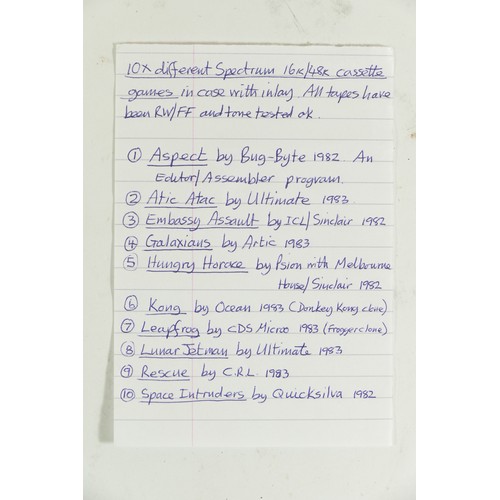 10x different Spectrum 16K/48K cassette
games in case with inlay. All tapes have
been RW/FF and tone tested ok.
① Aspect by Bug-Byte 1982. An
Editor/Assembler program.
② Atic Atac by Ultimate 1983.
③ Embassy Assault by ICL/Sinclair 1982
④ Galaxians by Artic 1983
⑤ Hungry Horace by Psion with Melbourne
House/Sinclair 1982
⑥ Kong by Ocean 1983 (Donkey Kong clone)
⑦ Leapfrog by CDS Micro 1983 (Frogger clone)
⑧ Lunar Jetman by Ultimate 1983
⑨ Rescue by C.R.L. 1983
⑩ Space Intruders by Quicksilva 1982